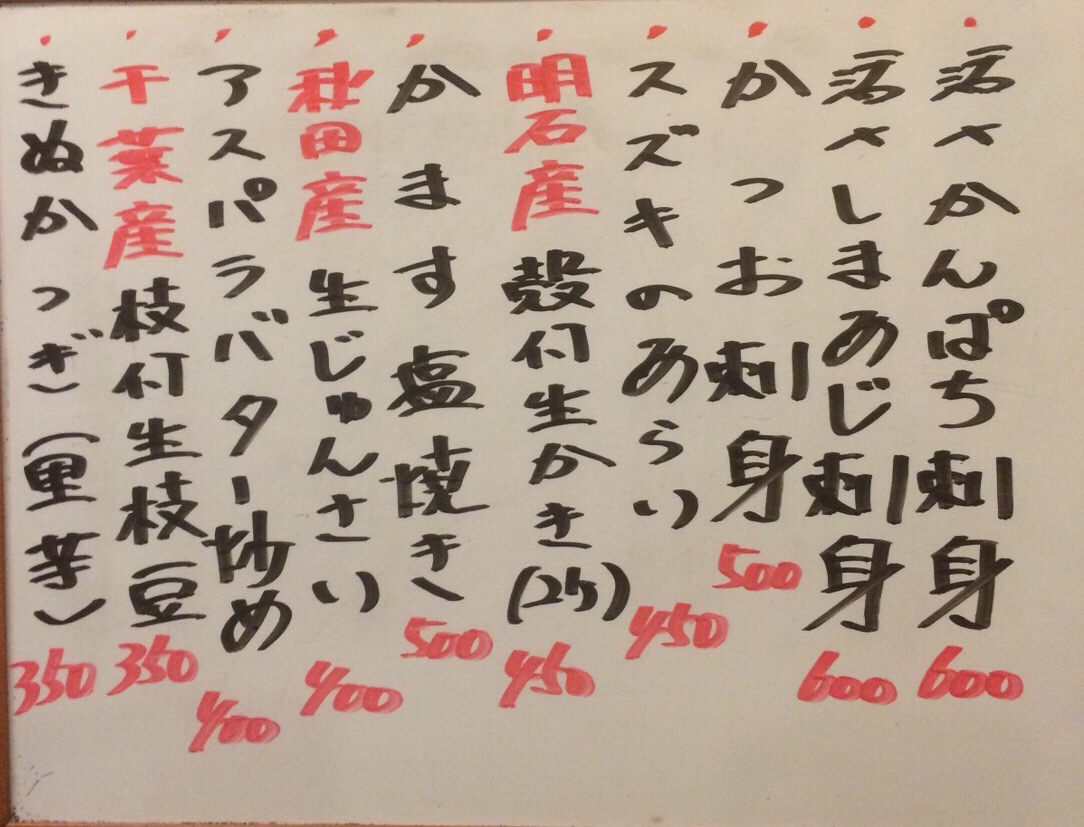 ・活〆かんぱち刺身 600
・活〆しまあじ刺身 600
・かつお刺身 500
・スズキのあらい 450
・明石産 殻付生かき(2ケ) 450
・かます塩焼き 500
・秋田産 生じゅんさい 400
・アスパラバター炒め 400
・千葉産 枝付生枝豆 350
・きぬかつぎ(里芋) 350